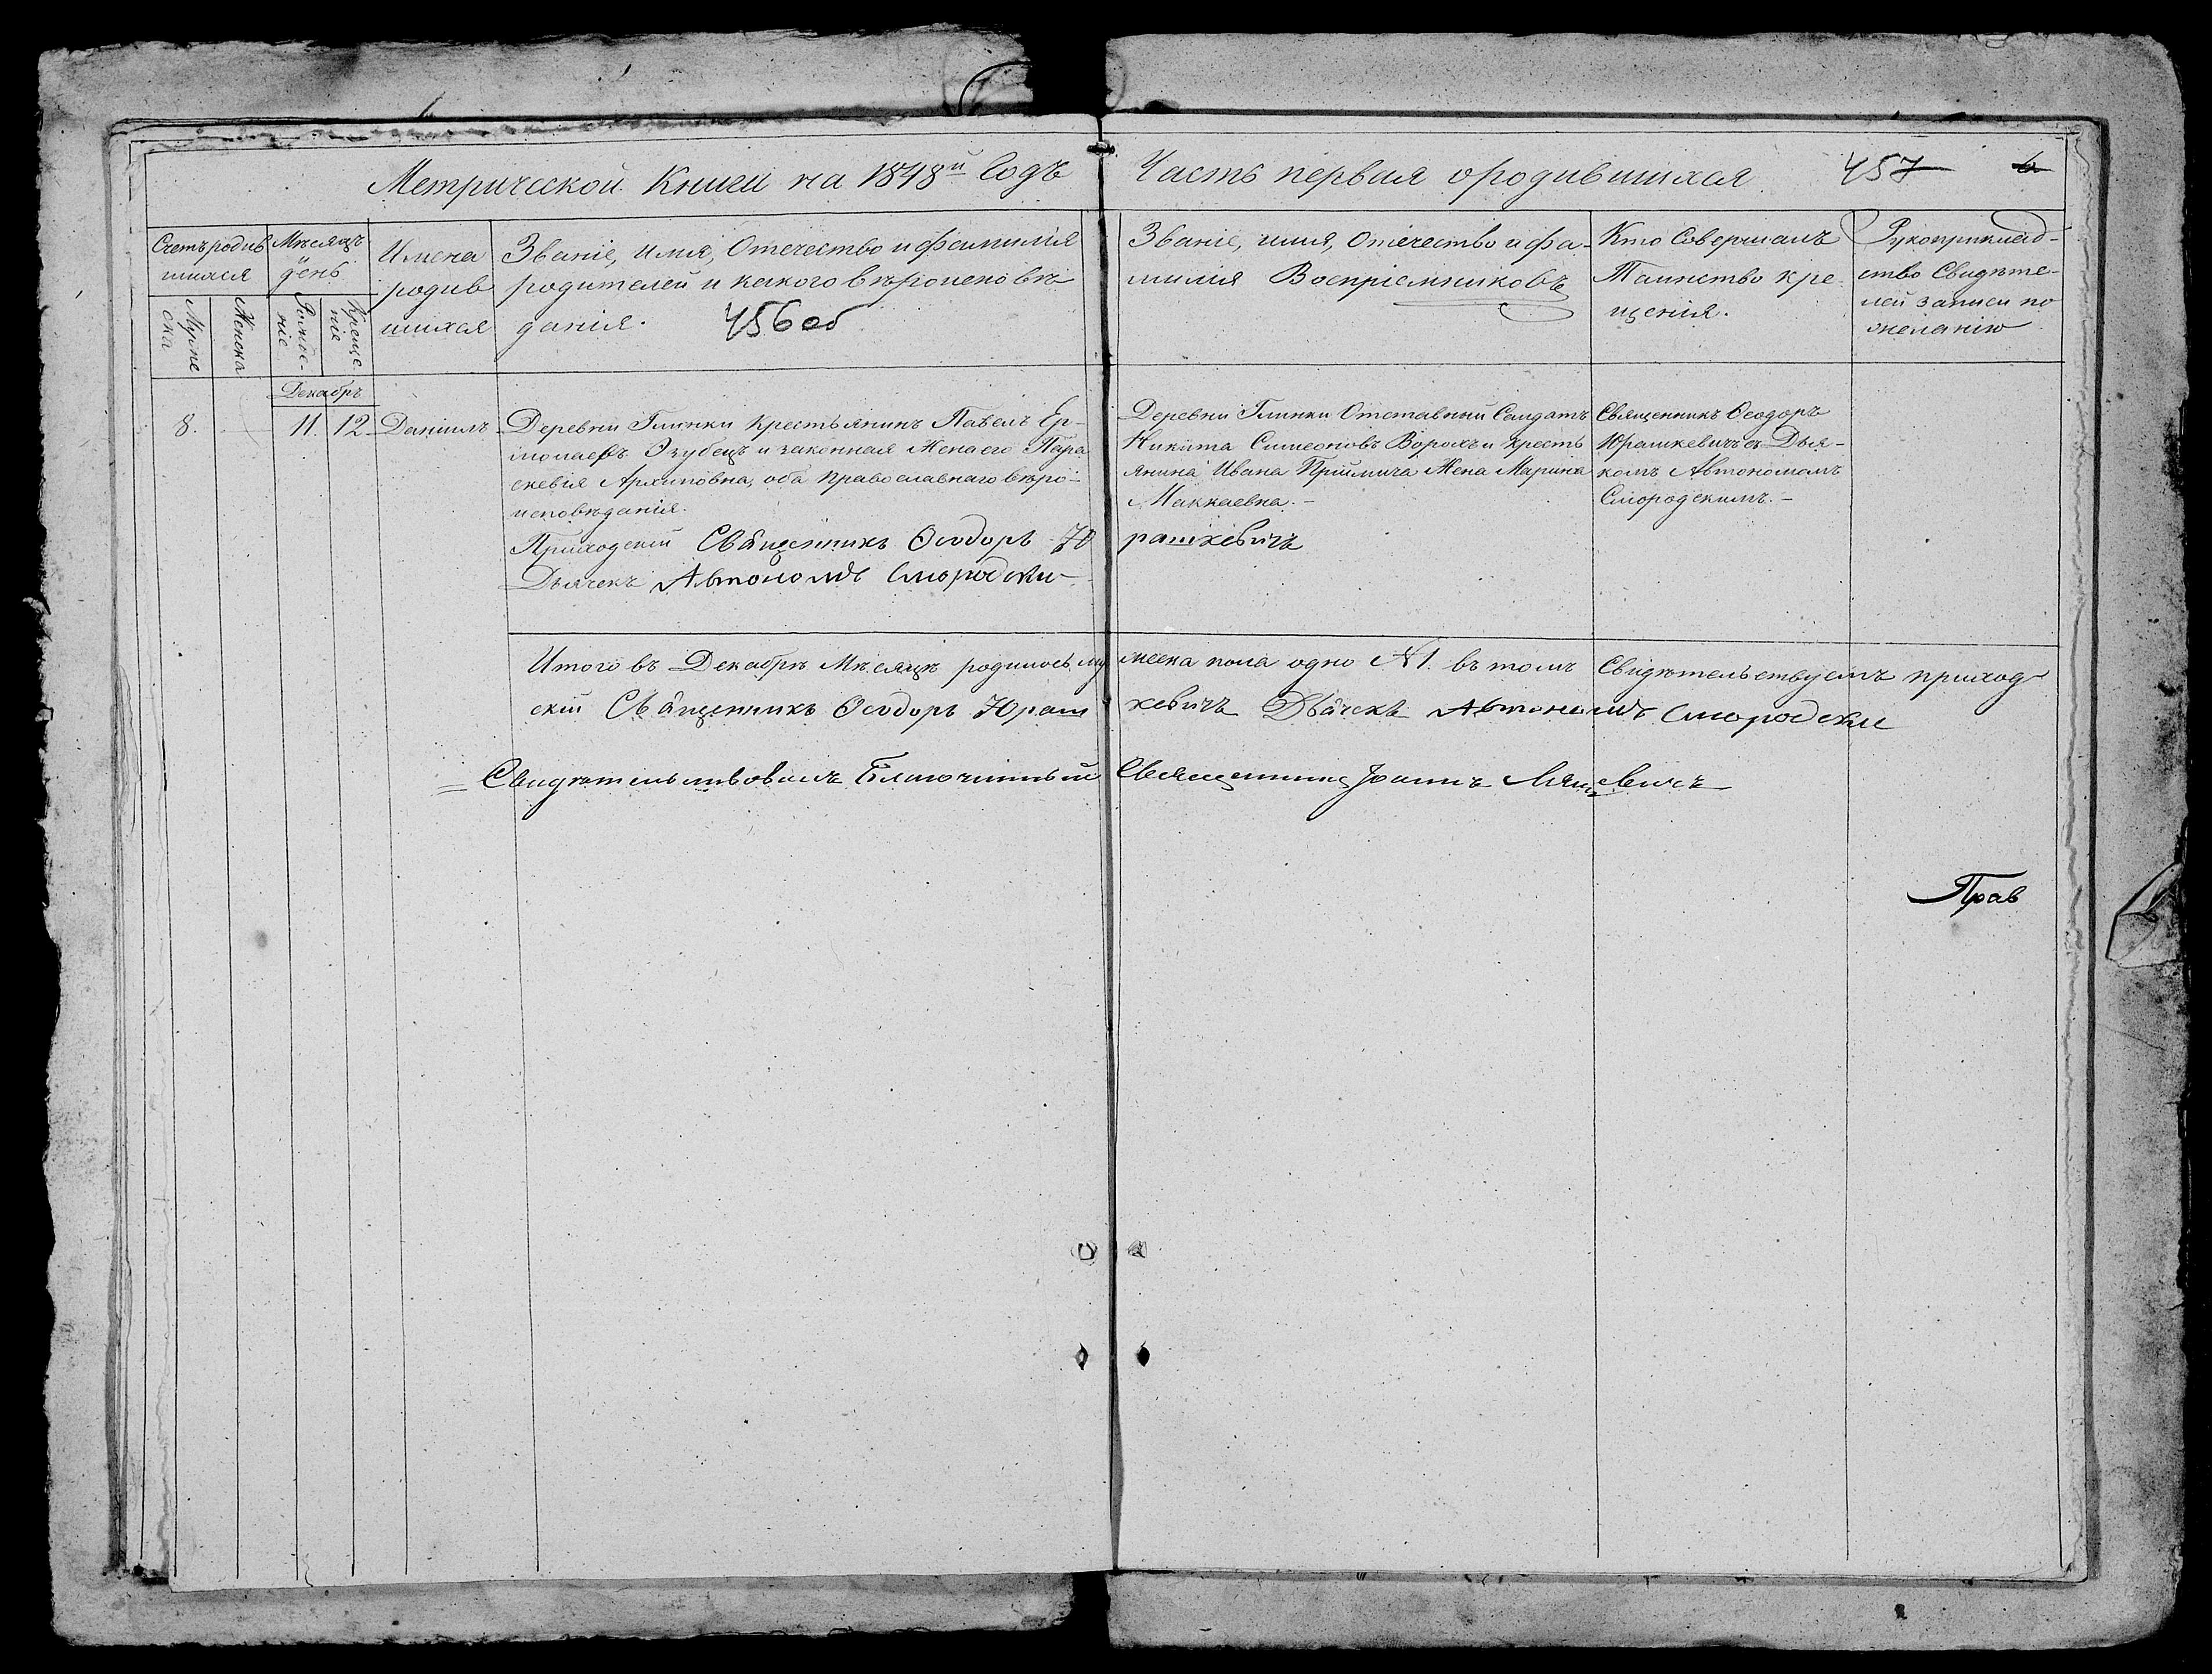 Метрической Книги на 1848й Годъ
Часть первая о родившихся
457
6
Счетъ родив
шихся
Мѣсяцъ
день
Мужес
ска
Женска
Рожде-
ніе
Креще
ніе
Имена
родив
шихся
Званіе, Имя, Отечество и фамилія
родителей и какого вѣроисповѣ
данія.
456 об
Званіе, имя, Отечество и фа-
милія Воспріемниковъ
Кто Совершалъ
Таинство кре
щенія.
Рукоприклад-
ство Свидѣте-
лей записи по
желанію
Декабрь
8.
11.
12
Даніилъ
Деревни Глинки Крестьянинъ Павелъ Ер-
молаевъ Озубецъ и законная Жена его Пара
скевія Архиповна, оба Православнаго вѣро-
исповѣданія.
Деревни Глинки Отставный Салдатъ
Никита Симеоновъ Ворохъ и кресть
янина Ивана Приймича Жена Марина
Маккаевна.-
Священникъ Ѳеодоръ
Юрашкевичъ съ Дья-
комъ Автономомъ
Смородскимъ.-
Приходскій Священникъ Ѳеодоръ Юрашкевичъ
Дьячекъ Автономъ Смородски
Итого въ Декабрѣ Мѣсяцѣ родилось мужеска пола одно №1. въ томъ Свидѣтельствуемъ приход
скій Священникъ Ѳеодоръ Юрашкевичъ Дьячекъ Автономъ Смородски
Свидѣтельствовалъ Благочинный Священникъ Іоаннъ
Прав